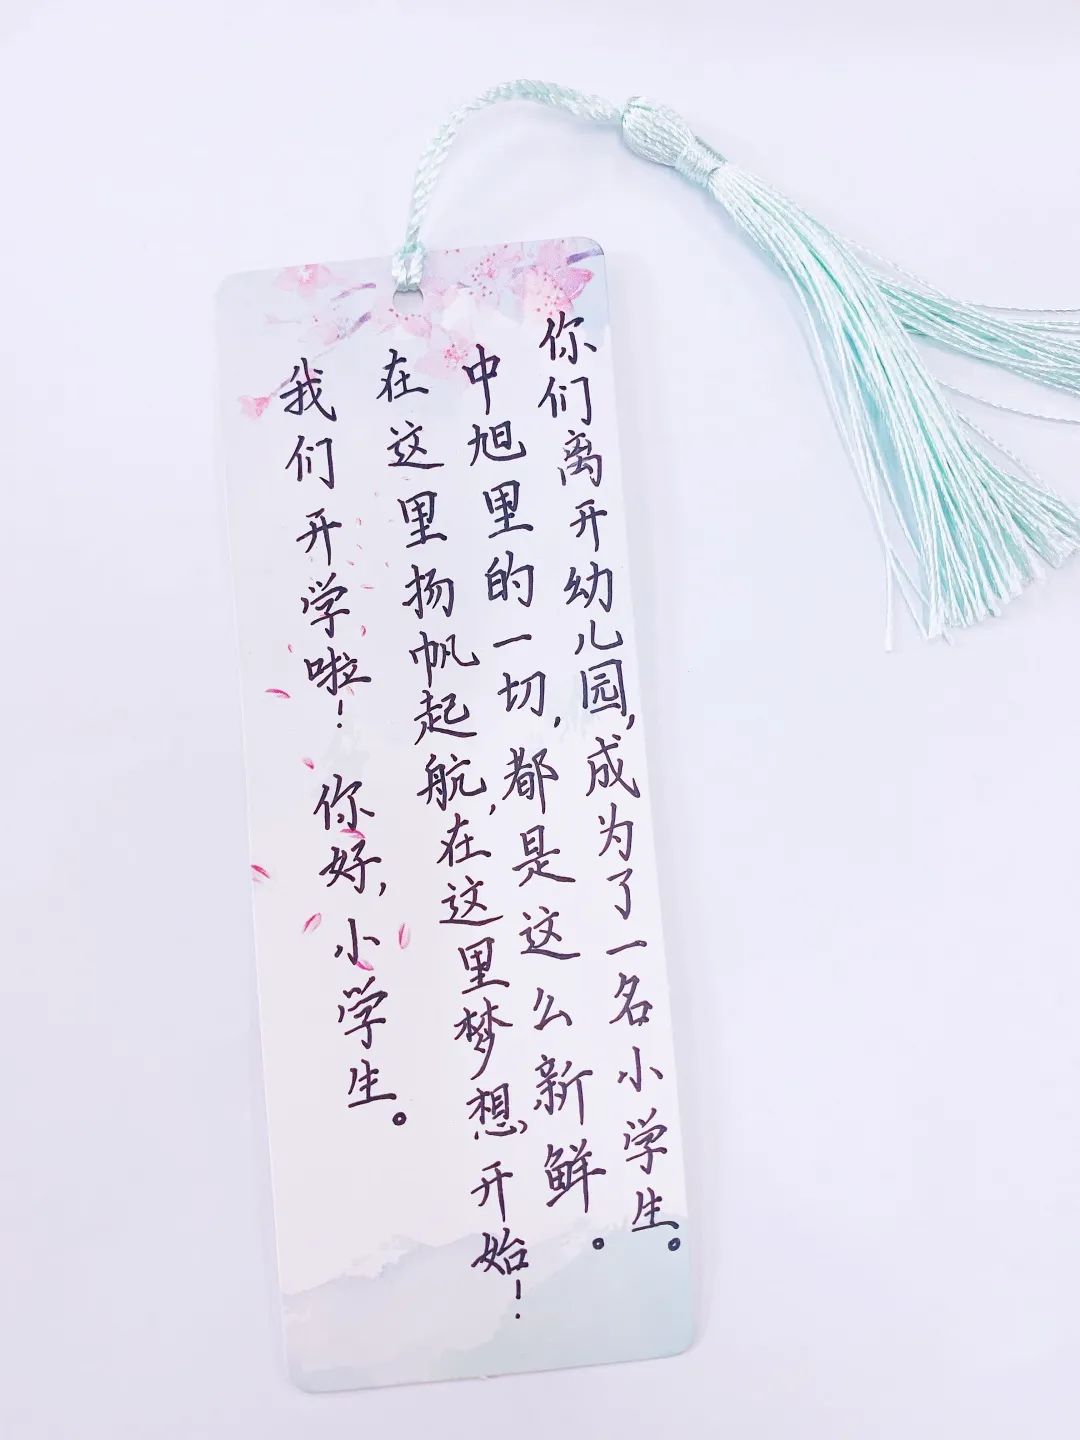 你们离开幼儿园,成为了一名小学生。
中旭里的一切,都是这么新鲜。
在这里扬帆起航,在这里梦想开始!
我们开学啦!你好,小学生。